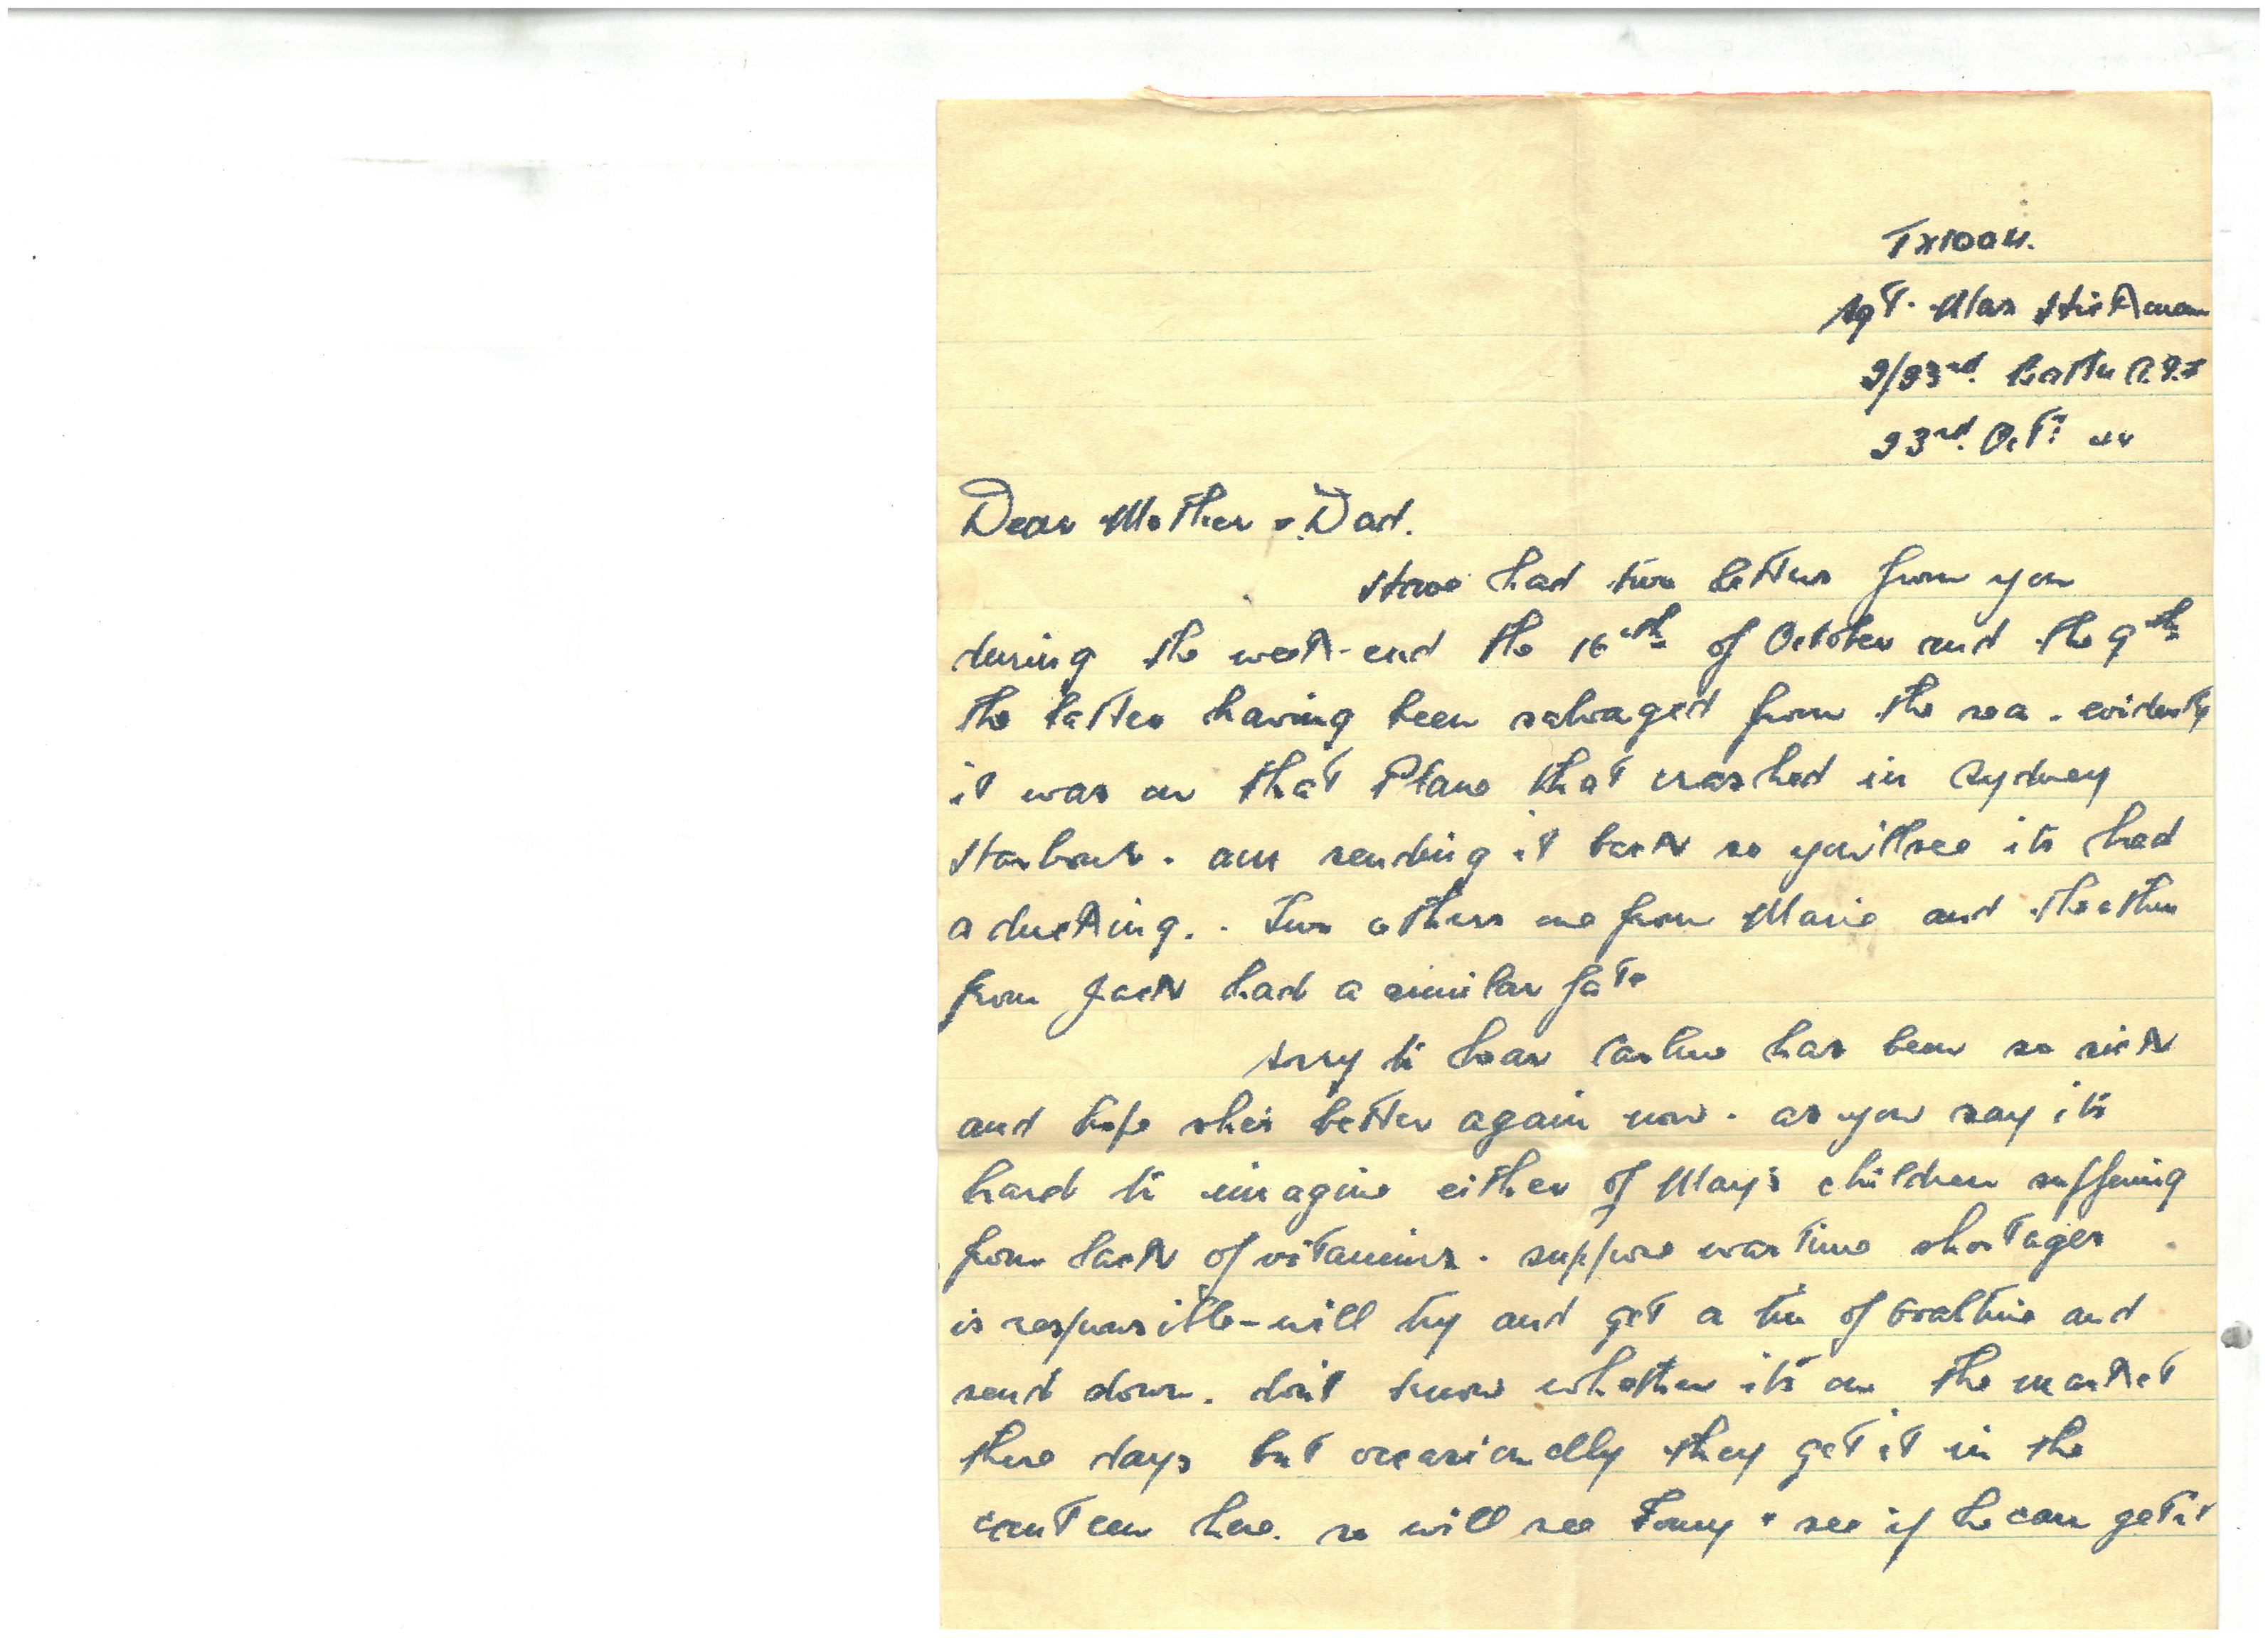 TX1004.
Sgt. Max Hickman
2/23rd. Battn A.I.F
23rd. Oct: 44
Dear Mother & Dad.
Have had two letters from you
during the week-end the 16th of October and the 9th
the latter having been salvaged from the sea. evidently
it was on that Plane that crashed in Sydney
Harbour. am sending it back so you'll see its had
a ducking.. Two others one from Marie and the other
from Jack had a similar fate
Sorry to hear has been so sick
and hope she's better again now. as you say it's
hard to imagine either of May's children suffering
from lack of vitamins. suppose war time shortages
is responsible - will try and get a tin of Ovaltine and
send down. don't know whether it's on the market
these days but occasionally they get it in the
canteen here. so will see Tony & see if he can get it